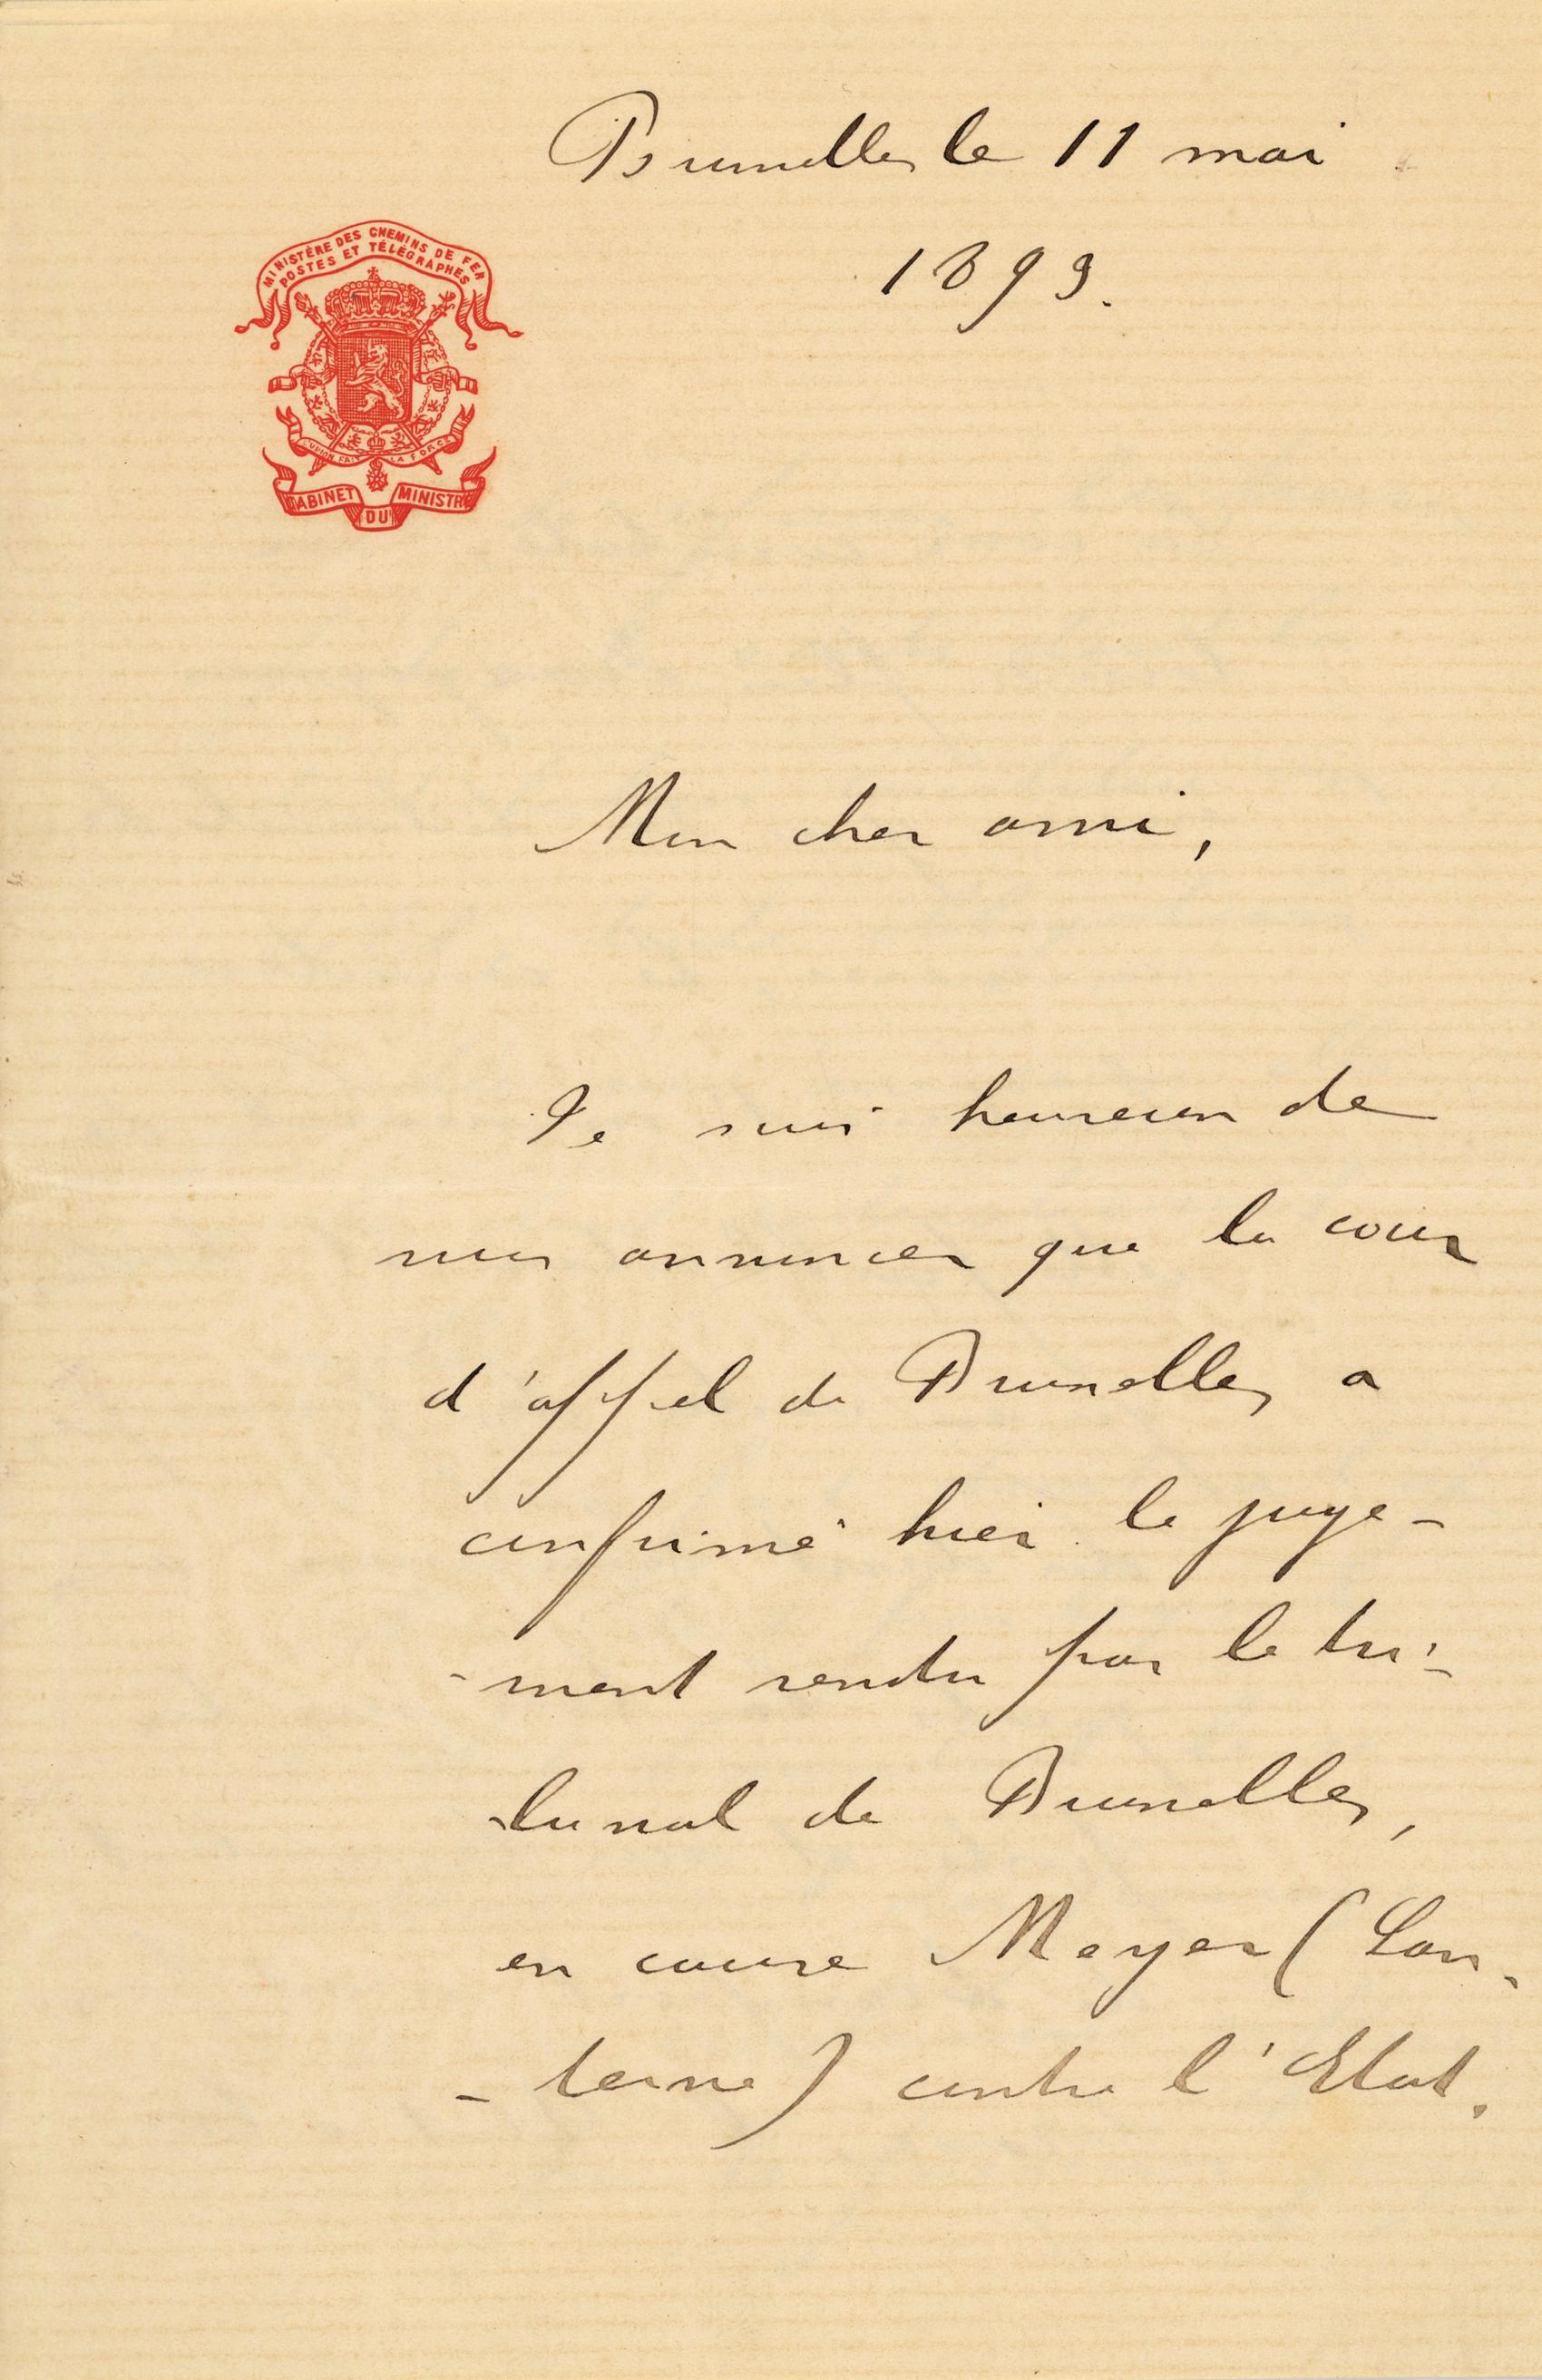 Bruxelles le 11 mai
1893.
MINISTÈRE DES CHEMINS DE FER
POSTES ET TÉLÉGRAPHES
L'UNION FAIT LA FORCE
CABINET DU MINISTRE
Mon cher ami,
Je suis heureux de
vous annoncer que la cour
d'appel de Bruxelles a
confirmé hier le juge-
-ment rendu par le tri-
-bunal de Bruxelles,
en cause Meyer (Lan-
-terne) contre l'Etat.